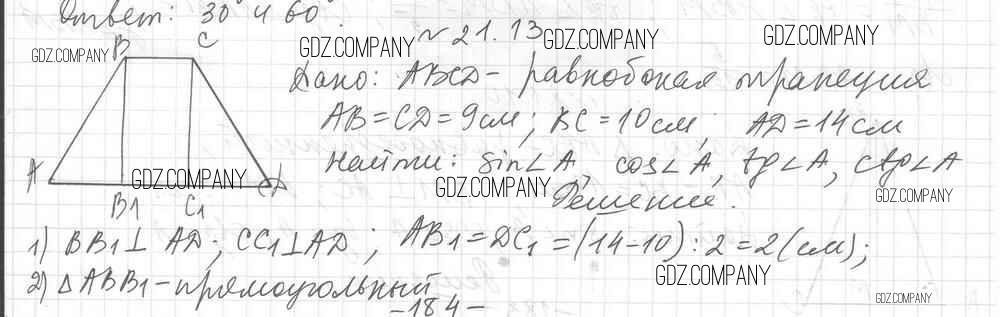 Ответ: 30° и 60°.
№ 21.13
GDZ.COMPANY GDZ.COMPANY GDZ.COMPANY GDZ.COMPANY
B C
Дано: ABCD - равнобокая трапеция
AB = CD = 9 см; BC = 10 см; AD = 14 см
Найти: sin∠A, cos∠A, tg∠A, ctg∠A
A GDZ.COMPANY D GDZ.COMPANY GDZ.COMPANY
B1 C1
Решение.
1) BB1 ⊥ AD; CC1 ⊥ AD; AB1 = DC1 = (14-10) : 2 = 2 (см);
GDZ.COMPANY
2) △ABB1 - прямоугольный
GDZ.COMPANY
-184-